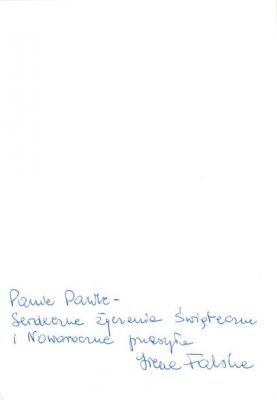 Panie Pawle -
Serdeczne życzenia Świąteczne
i Noworoczne przesyła
Irena Falska